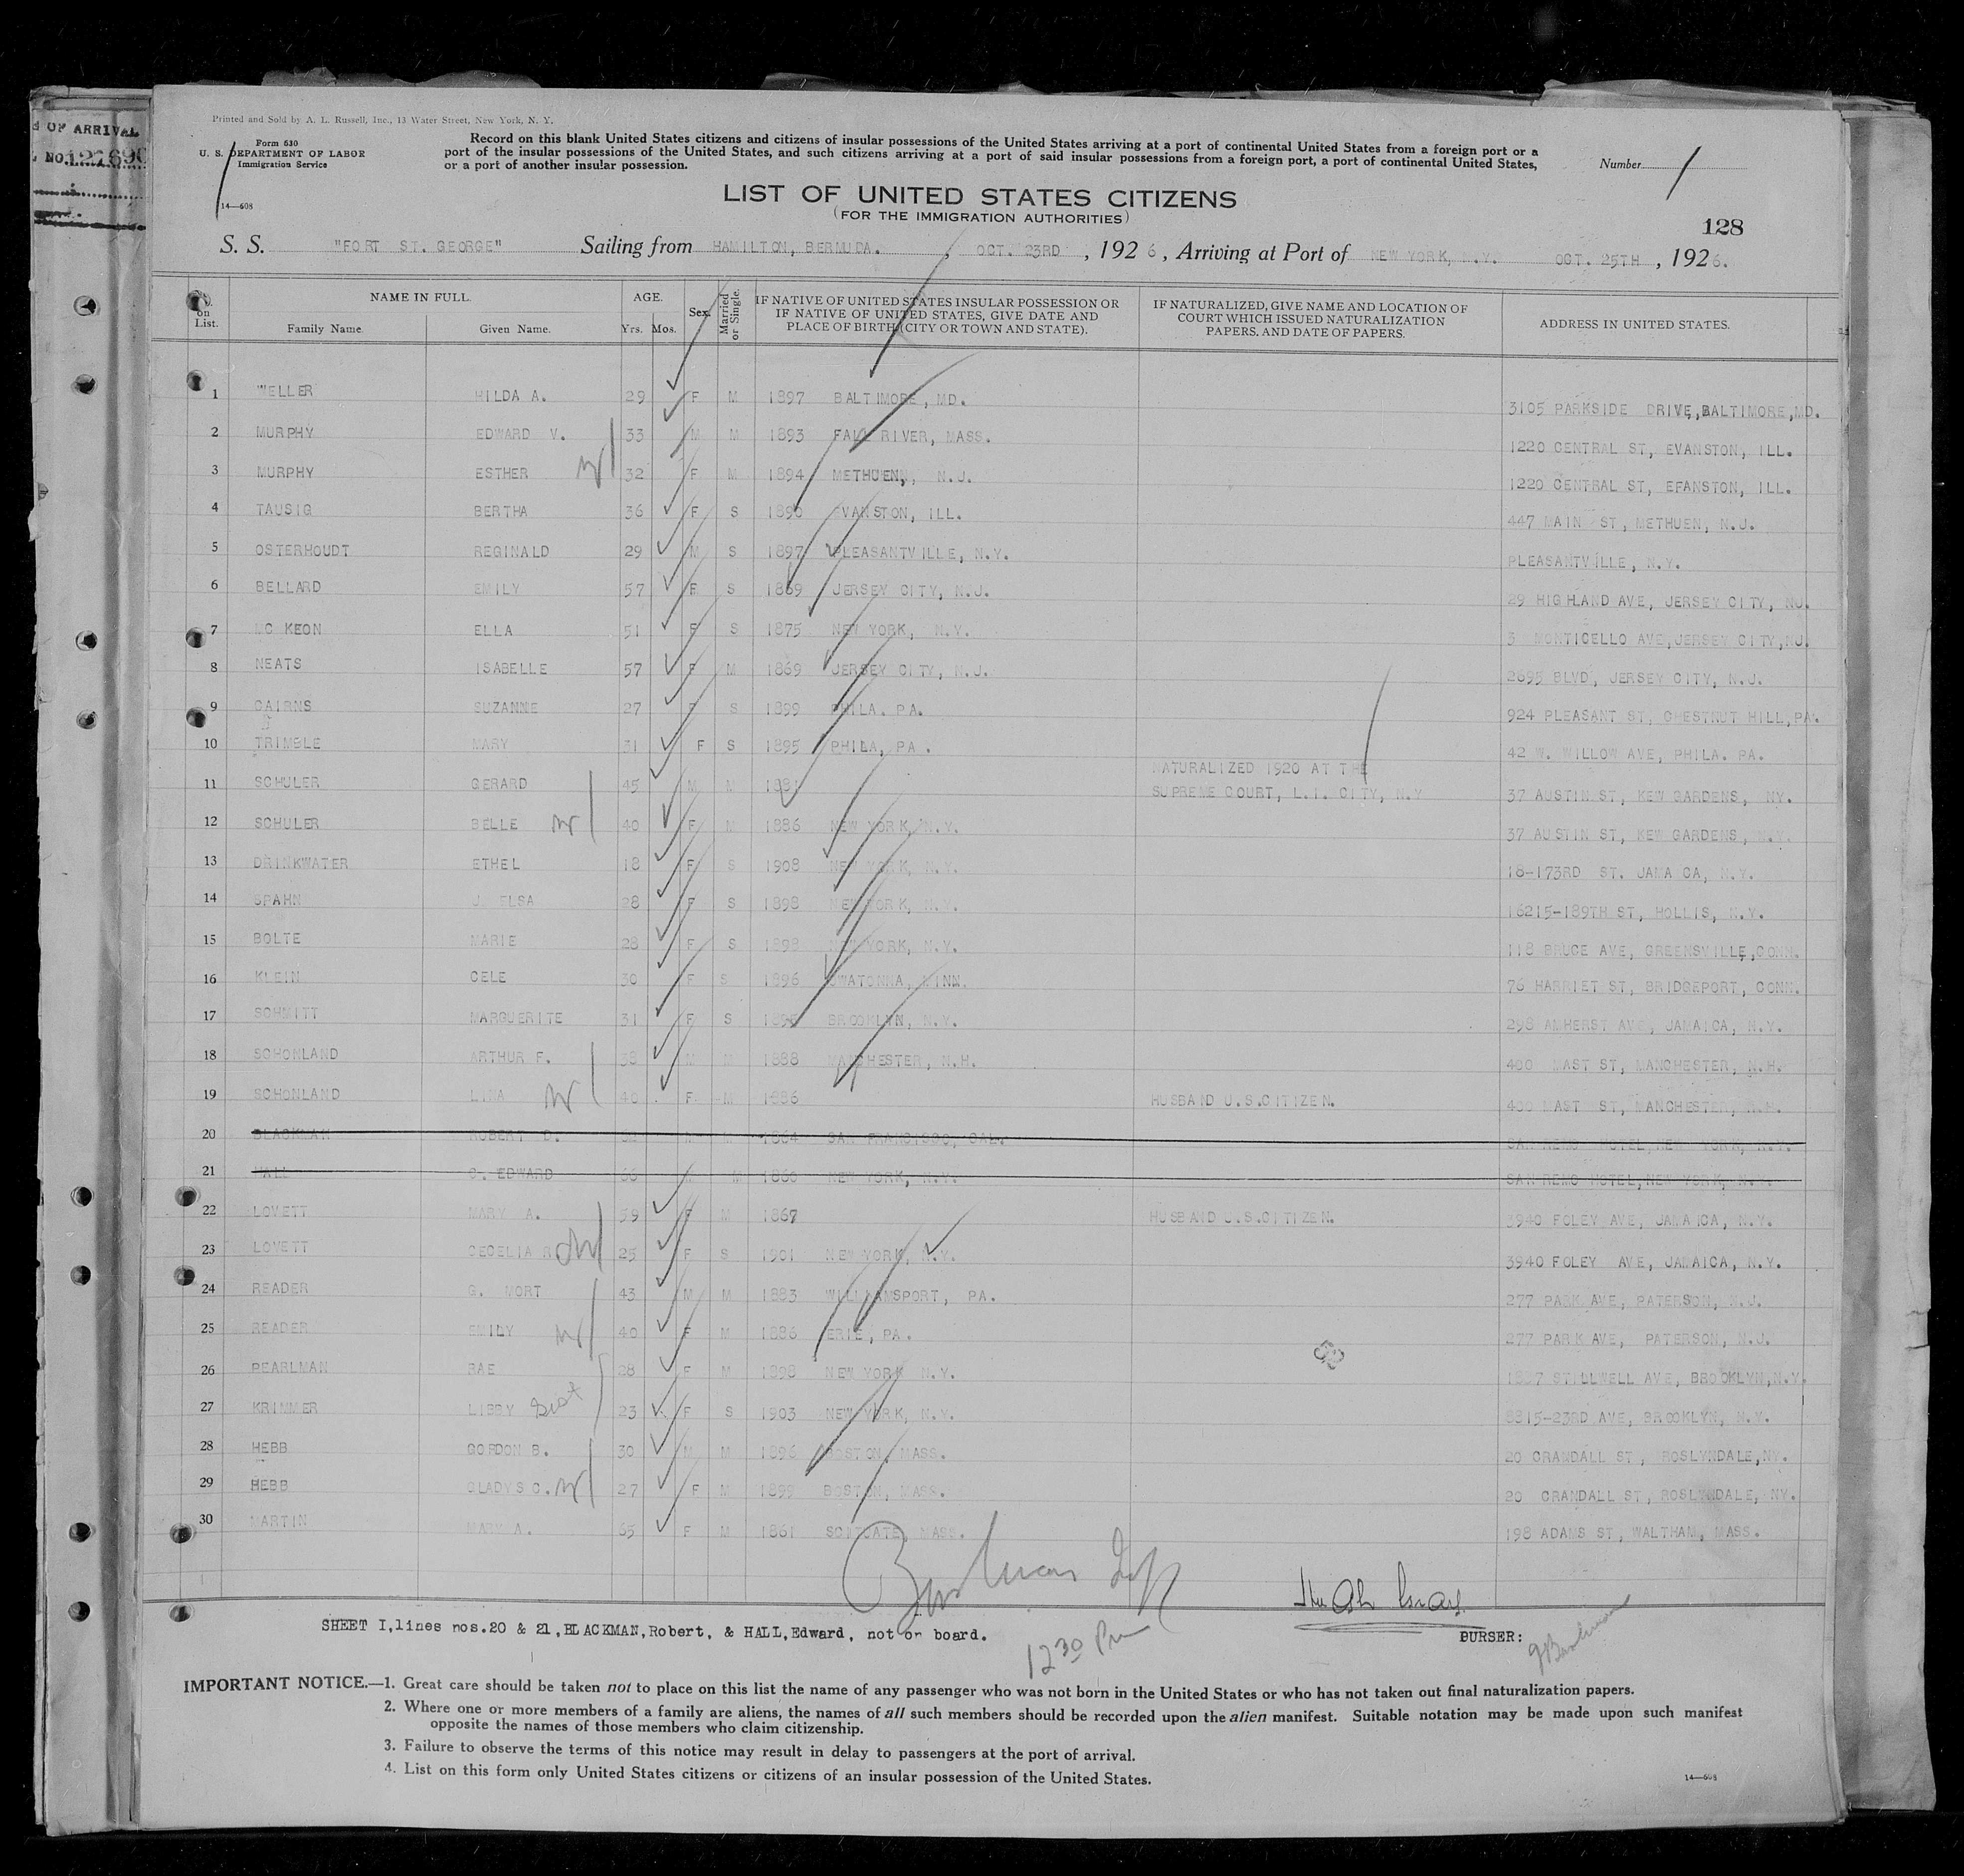 OF ARRIVAL
NO. 127690
Printed and Sold by A. L. Russell, Inc., 13 Water Street, New York, N. Y.
Form 630
U. S. DEPARTMENT OF LABOR
Immigration Service
14—608
Record on this blank United States citizens and citizens of insular possessions of the United States arriving at a port of continental United States from a foreign port or a
port of the insular possessions of the United States, and such citizens arriving at a port of said insular possessions from a foreign port, a port of continental United States,
or a port of another insular possession.
Number
LIST OF UNITED STATES CITIZENS
(FOR THE IMMIGRATION AUTHORITIES)
128
S. S. "FORT ST. GEORGE" Sailing from HAMILTON, BERMUDA. , OCT. 23RD , 1926, Arriving at Port of NEW YORK, N.Y. OCT. 25TH , 1926.
No. on List. NAME IN FULL. Family Name. Given Name. AGE. Yrs. Mos. Sex. Married or Single. IF NATIVE OF UNITED STATES INSULAR POSSESSION OR IF NATIVE OF UNITED STATES, GIVE DATE AND PLACE OF BIRTH (CITY OR TOWN AND STATE). IF NATURALIZED, GIVE NAME AND LOCATION OF COURT WHICH ISSUED NATURALIZATION PAPERS, AND DATE OF PAPERS. ADDRESS IN UNITED STATES.
1 WELLER HILDA A. 29 F M 1897 BALTIMORE, MD. 3105 PARKSIDE DRIVE, BALTIMORE, MD.
2 MURPHY EDWARD V. 33 M M 1893 FALL RIVER, MASS. 1220 CENTRAL ST, EVANSTON, ILL.
3 MURPHY ESTHER 32 F M 1894 METHUEN, N.J. 1220 CENTRAL ST, EFANSTON, ILL.
4 TAUSIG BERTHA 36 F S 1890 EVANSTON, ILL. 447 MAIN ST, METHUEN, N.J.
5 OSTERHOUDT REGINALD 29 M S 1897 PLEASANTVILLE, N.Y. PLEASANTVILLE, N.Y.
6 BELLARD EMILY 57 F S 1869 JERSEY CITY, N.J. 29 HIGHLAND AVE, JERSEY CITY, NJ.
7 MC KEON ELLA 51 F S 1875 NEW YORK, N.Y. 3 MONTICELLO AVE, JERSEY CITY, NJ.
8 NEATS ISABELLE 57 F M 1869 JERSEY CITY, N.J. 2695 BLVD, JERSEY CITY, N.J.
9 CAIRNS SUZANNE 27 F S 1899 PHILA. PA. 924 PLEASANT ST, CHESTNUT HILL, PA.
10 TRIMBLE MARY 31 F S 1895 PHILA, PA. 42 W. WILLOW AVE, PHILA. PA.
11 SCHULER GERARD 45 M M 1881 NATURALIZED 1920 AT THE SUPREME COURT, L.I. CITY, N.Y 37 AUSTIN ST, KEW GARDENS, NY.
12 SCHULER BELLE 40 F M 1886 NEW YORK, N.Y. 37 AUSTIN ST, KEW GARDENS, N.Y.
13 DRINKWATER ETHEL 18 F S 1908 NEW YORK, N.Y. 18-173RD ST. JAMAICA, N.Y.
14 SPAHN J. ELSA 28 F S 1898 NEW YORK, N.Y. 16215-189TH ST, HOLLIS, N.Y.
15 BOLTE MARIE 28 F S 1898 NEW YORK, N.Y. 118 BRUCE AVE, GREENSVILLE, CONN.
16 KLEIN CELE 30 F S 1896 OWATONNA, MINN. 76 HARRIET ST, BRIDGEPORT, CONN.
17 SCHMITT MARGUERITE 31 F S 1895 BROOKLYN, N.Y. 298 AMHERST AVE, JAMAICA, N.Y.
18 SCHONLAND ARTHUR F. 38 M M 1888 MANCHESTER, N.H. 400 MAST ST, MANCHESTER, N.H.
19 SCHONLAND LINA 40 F M 1886 HUSBAND U.S.CITIZEN. 400 MAST ST, MANCHESTER, N.H.
20 BLACKMAN ROBERT 1864 SAN FRANCISCO, CAL. SAN REMO HOTEL, NEW YORK, N.Y.
21 HALL C. EDWARD 66 M M 1860 NEW YORK, N.Y. SAN REMO HOTEL, NEW YORK, N.Y.
22 LOVETT MARY A. 59 F M 1867 HUSBAND U.S.CITIZEN. 3940 FOLEY AVE, JAMAICA, N.Y.
23 LOVETT CECELIA R 25 F S 1901 NEW YORK, N.Y. 3940 FOLEY AVE, JAMAICA, N.Y.
24 READER G. MORT 43 M M 1883 WILLIAMSPORT, PA. 277 PARK AVE, PATERSON, N.J.
25 READER EMILY 40 F M 1886 ERIE, PA. 277 PARK AVE, PATERSON, N.J.
26 PEARLMAN RAE 28 F M 1898 NEW YORK N.Y. 1887 STILLWELL AVE, BROOKLYN, N.Y.
27 KRIMMER LIBBY Sist 23 F S 1903 NEW YORK, N.Y. 8815-23RD AVE, BROOKLYN, N.Y.
28 HEBB GORDON B. 30 M M 1896 BOSTON, MASS. 20 CRANDALL ST, ROSLYNDALE, NY.
29 HEBB GLADYS C. 27 F M 1899 BOSTON, MASS. 20 CRANDALL ST, ROSLYNDALE, NY.
30 MARTIN MARY A. 65 F M 1861 SCITUATE, MASS. 198 ADAMS ST, WALTHAM, MASS.
SHEET I, lines nos.20 & 21, BLACKMAN, Robert, & HALL, Edward, not on board.
12 30 Pm
PURSER:
IMPORTANT NOTICE.—1. Great care should be taken not to place on this list the name of any passenger who was not born in the United States or who has not taken out final naturalization papers.
2. Where one or more members of a family are aliens, the names of all such members should be recorded upon the alien manifest. Suitable notation may be made upon such manifest
opposite the names of those members who claim citizenship.
3. Failure to observe the terms of this notice may result in delay to passengers at the port of arrival.
4. List on this form only United States citizens or citizens of an insular possession of the United States.
14—608